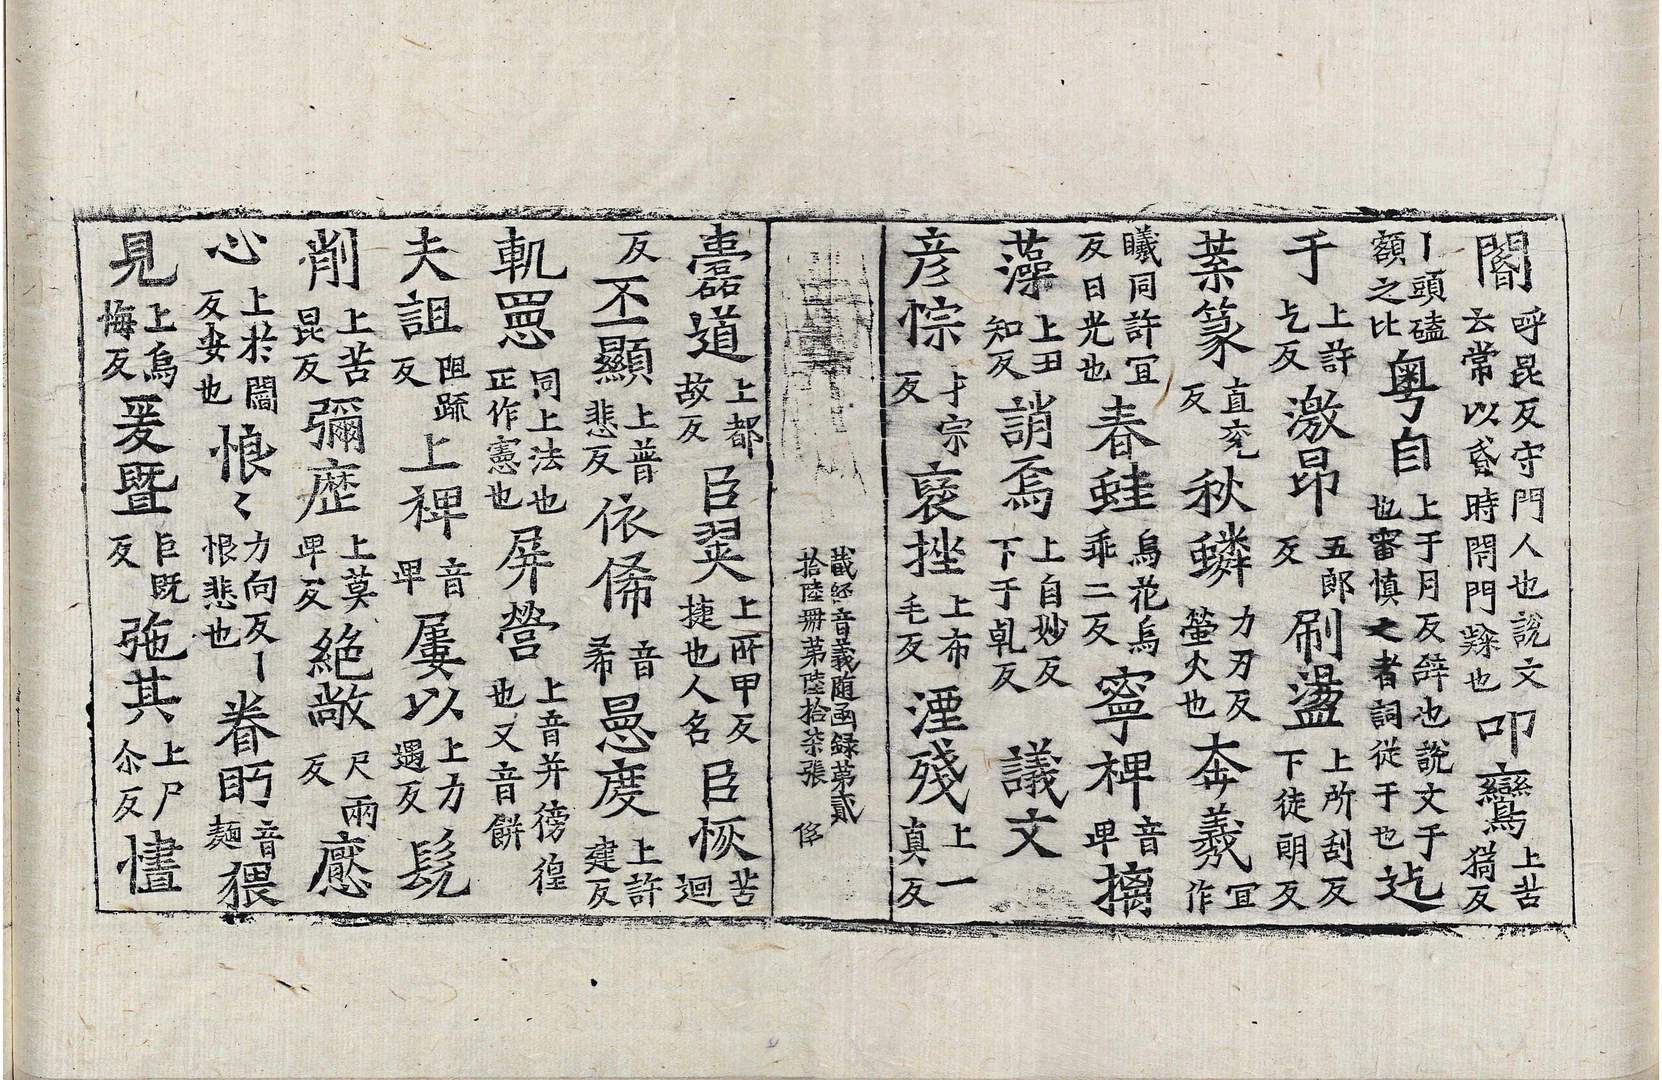 閽呼昆反守門人也說文云常以昏時閇門𨽻也叩鸞上苦猗反
丨頭磕額之比粤自上于月反辝也說文于也審慎之者詞從于也迄
于上許乞反激昂五郎反刷盪上所刮反下徒朗反
蘂篆直兖反秋蟒力刃反螢火也犇羲宜作
曦同許宜反日光也春蛙烏花烏乖二反寧裨音卑摛
藻上丑知反誚焉上自妙反下于乹反議文
彦悰才宗反裦挫上布毛反湮殘上一真反
藏經音義随函録第貳拾陸冊第陸拾柒張 侈
蠹道上都故反臣翜上所甲反捷也人名臣恢苦迴
反丕顯上普悲反依俙音希㬎度上許建反
軌𦋅同上法也正作憲也屏營上音并徬徨也又音餅
夫詛阻䟽反上裨音卑屢以上力遇反髡
削上苦昆反彌歴上莫卑反絶敞尺兩反應
心上於閻反安也悢〻力向反丨悢悲也眷眄音麵猥
見上烏悔反爰暨巨既反弛其上尸尒反慬